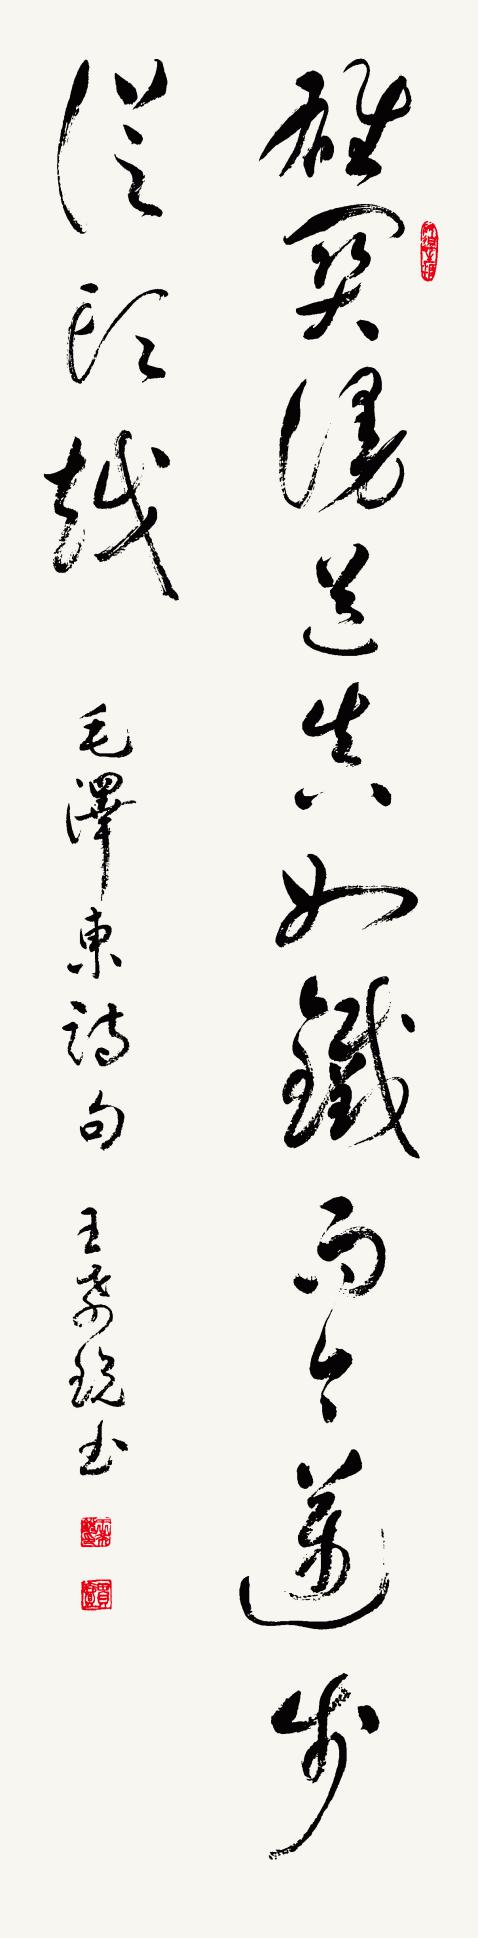 雄關漫道真如鐵而今邁步
從頭越 毛澤東詩句 王學

書